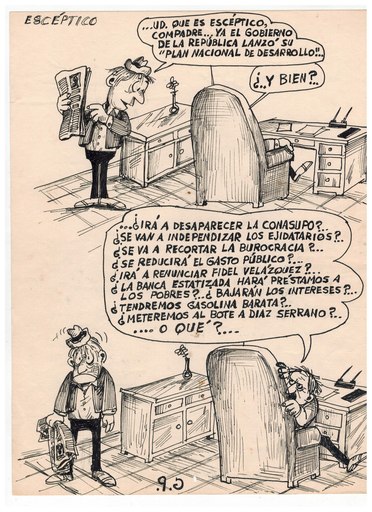 ESCÉPTICO
...UD. QUE ES ESCÉPTICO,
COMPADRE... YA EL GOBIERNO
DE LA REPÚBLICA LANZÓ SU
"PLAN NACIONAL DE DESARROLLO"..
¿..Y BIEN?..
...¿IRÁ A DESAPARECER LA CONASUPO?..
¿SE VAN A INDEPENDIZAR LOS EJIDATARIOS?..
¿SE VA A RECORTAR LA BUROCRACIA?...
¿SE REDUCIRÁ EL GASTO PÚBLICO?...
¿IRÁ A RENUNCIAR FIDEL VELÁZQUEZ?...
¿LA BANCA ESTATIZADA HARÁ PRÉSTAMOS A
LOS POBRES?..¿BAJARÁN LOS INTERESES?..
¿TENDREMOS GASOLINA BARATA?..
¿METEREMOS AL BOTE A DÍAZ SERRANO?..
.... O QUÉ?...